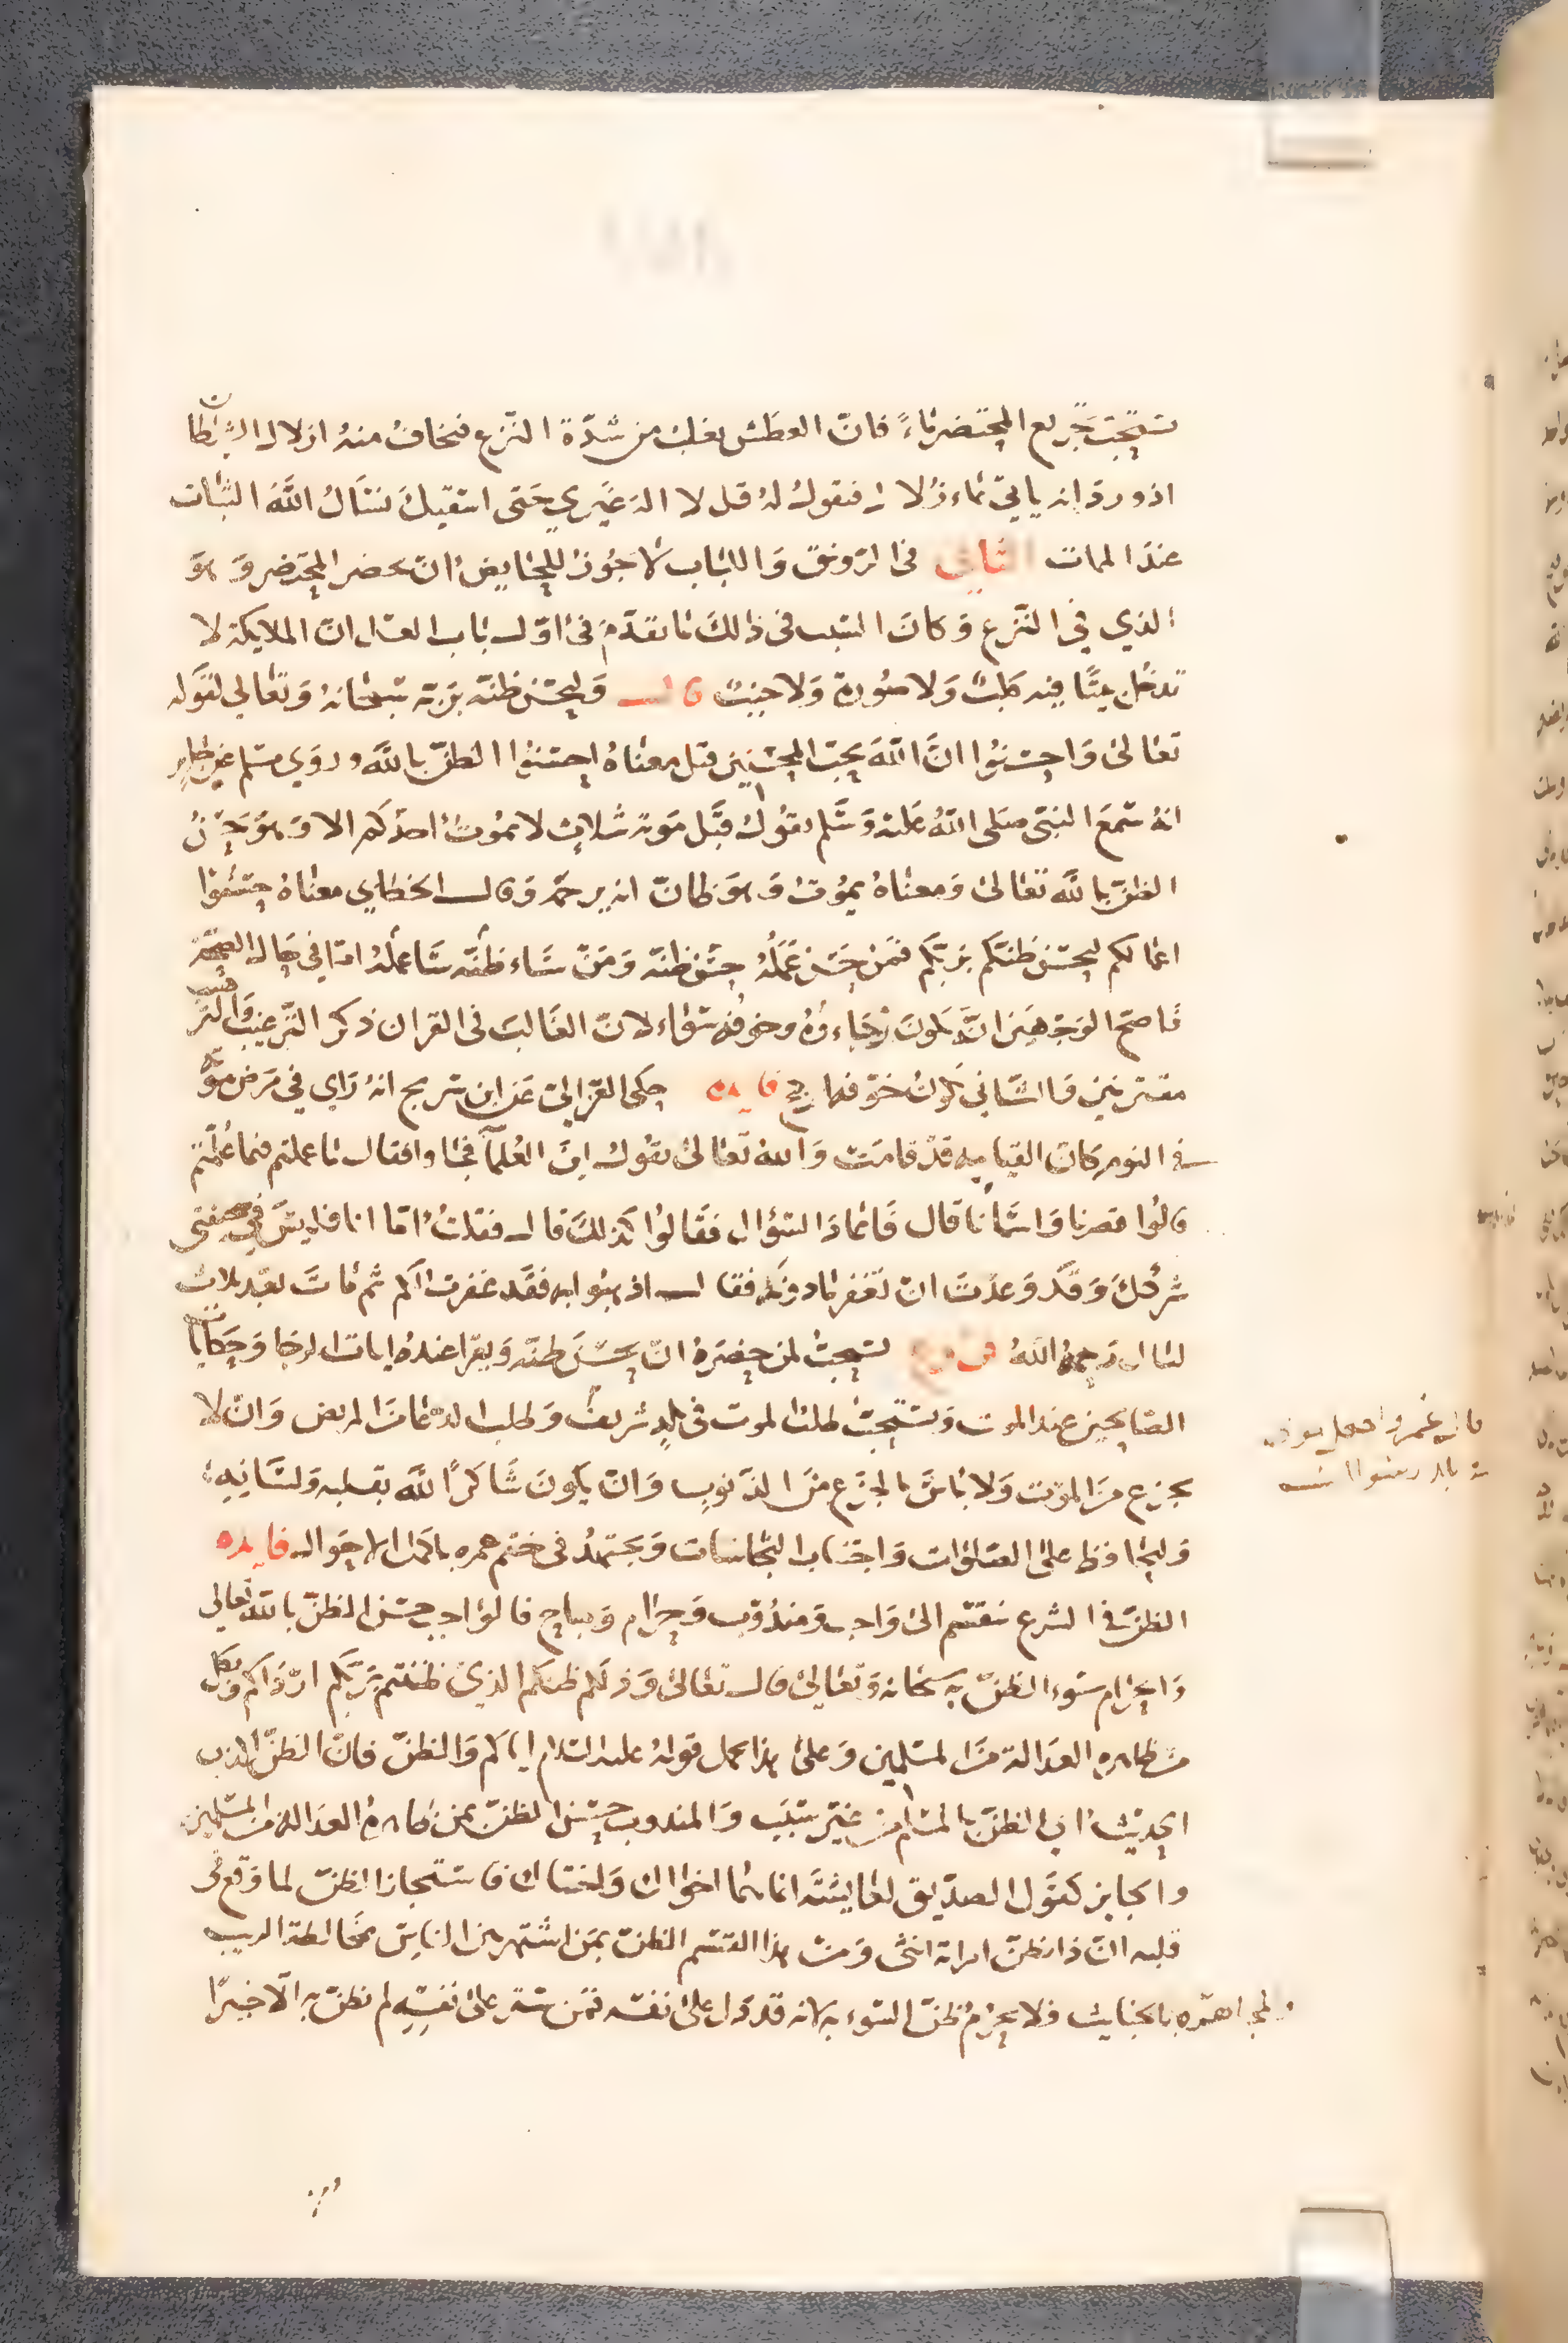 يستحب تجريع المحتضر ماءً فانّ العطش يغلب من شدّة النّزع فيخاف منهُ ازلال الشيطان
اذ ورد انه ياتي بماء زُلال فيقول لهُ قل لا اله غيري حَتى اسقيكَ نسأل اللّهَ الثبات
عندَ الممات الثاني فى الرّونق وَاللباب لا يجُوز للحايض ان تحضر المحتضر وَهوَ
الذي في النّزع وَكانَ السّبب فى ذالكَ ما تقدّمَ فى اوّل باب الغسل انّ الملايكة لا
تدخل بيتًا فيه كلبٌ وَلا صُورة وَلا جنبٌ قال وَليحسّن ظنّه بربّه سبحانهُ وَتعَالي لقَوله
تعَالىٰ وَاحسنوُا انَّ اللّهَ يحبّ المحسنِين قيل معناهُ احسنوُا الظنّ باللَّه وروَي مسلم عن جابرٍ
انهُ سَمعَ النبيّ صَلى اللّهُ عَليه وَسَلم يقوُل قبَل مَوته بثلاثٍ لا يموُتُ احدُكم الا وَهوَ يحسنُ
الظنّ باللَّه تعَالىٰ وَمعناهُ يموُت وَهوَ ظانّ انه يرحمهُ وَقال الخطابي معناهُ حسّنوُا
اعمالكم ليحسن ظنّكم بربّكم فمَن حَسن عَمَلُه حسن ظنّه وَمَنّ سَاء ظنّه سَاء عَملُهُ امّا في حَال الصحّة
فَاصَح الوَجهَين انَّ يكونَ رجَاءوهُ وخوفه سَوَاء لانّ الغَالبَ فى القران ذكر الترغيبُ وَالترهيب
مقترنين وَالثاني يكونُ خوَفه ارجح فايده حكى الغزالى عَن ابن سُريج انهُ رَاي في مَرض موَته
في النوم كانّ القيامه قدْ قامَت وَاللهُ تعَالىٰ يقوُل اينَ العُلمآ فجاوا فقال ما عملتم فيما عُلّمتم
قالوُا قصرنا وَاسَانا قال فَاعَادَ السّؤال فقَالوُا كذلكَ قال فقلتُ امّا انا فليسَ فى صحيفتى
شركٌ وَقدَ وَعدْتَ انّ تغفر ما دونَهُ فقال اذهبوا به فقَد غفرت لكم ثم مَاتَ بعد بثلاث
ليال رَحمهُ اللّهُ فرع يستحبّ لمن حضرَهُ انّ يحسّنَ ظنّه وَيقرا عندهُ ايات الرجَا وَحكايات
الصَالحينَ عند الموت وَيستحبّ طلب الموت فى بلدٍ شريفٍ وَطلب الدعا منَ المريض وَان لا
يجزع مِن الموَت وَلا باسَّ بالجزَع مِنَ الذنوبِ وَانّ يكونَ شَاكرًا للَّه بقَلبه وَلسَانِهِ
وَليحَافظ علىٰ الصَلوَات وَاجتنَاب النجَاسَات وَيجتَهدُ فى ختم عمره باكمَل الاحوَال فايده
الظنّ فى الشرع ينقَسم الىٰ وَاجب وَمندُوب وَحرَام وَمباح فالوَاجب حسن الظنّ باللَه تعالى
وَالحرَام سُوء الظنّ به سُبحَانه وَتعَالىٰ قال تعَالىٰ وَذلكم ظنكم الذي ظننتم بربّكم ارْدَاكم وَبكل
مَن ظاهره العدَالة منَ المسلمين وَعلىٰ هذا يحمل قولهُ عليه السّلام ايَاكم وَالظنّ فانّ الظنّ اكذب
الحديث اي الظنّ بالمسلم من غيَر سَبَب وَالمندوب حسن الظنّ بمن ظاهره العدَالة من المسلمين
والجايز كقوَل الصدّيق لعَايشَة انما هما اخوَاك وَاختاك فاستجاز الظنّ لما وَقعَ فى
قلبه انّ ذا بطن امراته انثىٰ وَمنْ هذا القسَم الظنّ بمَن اشتهر بين الناسِ بمخَالطة الريب
وَالمجاهَرة بالخبَايث فلا يحرُم ظنّ السّوء به لانه قد دَل علىٰ نفسه فمَن ستَر علىٰ نفسِهِ لم نظنّ به الّا خيرًا